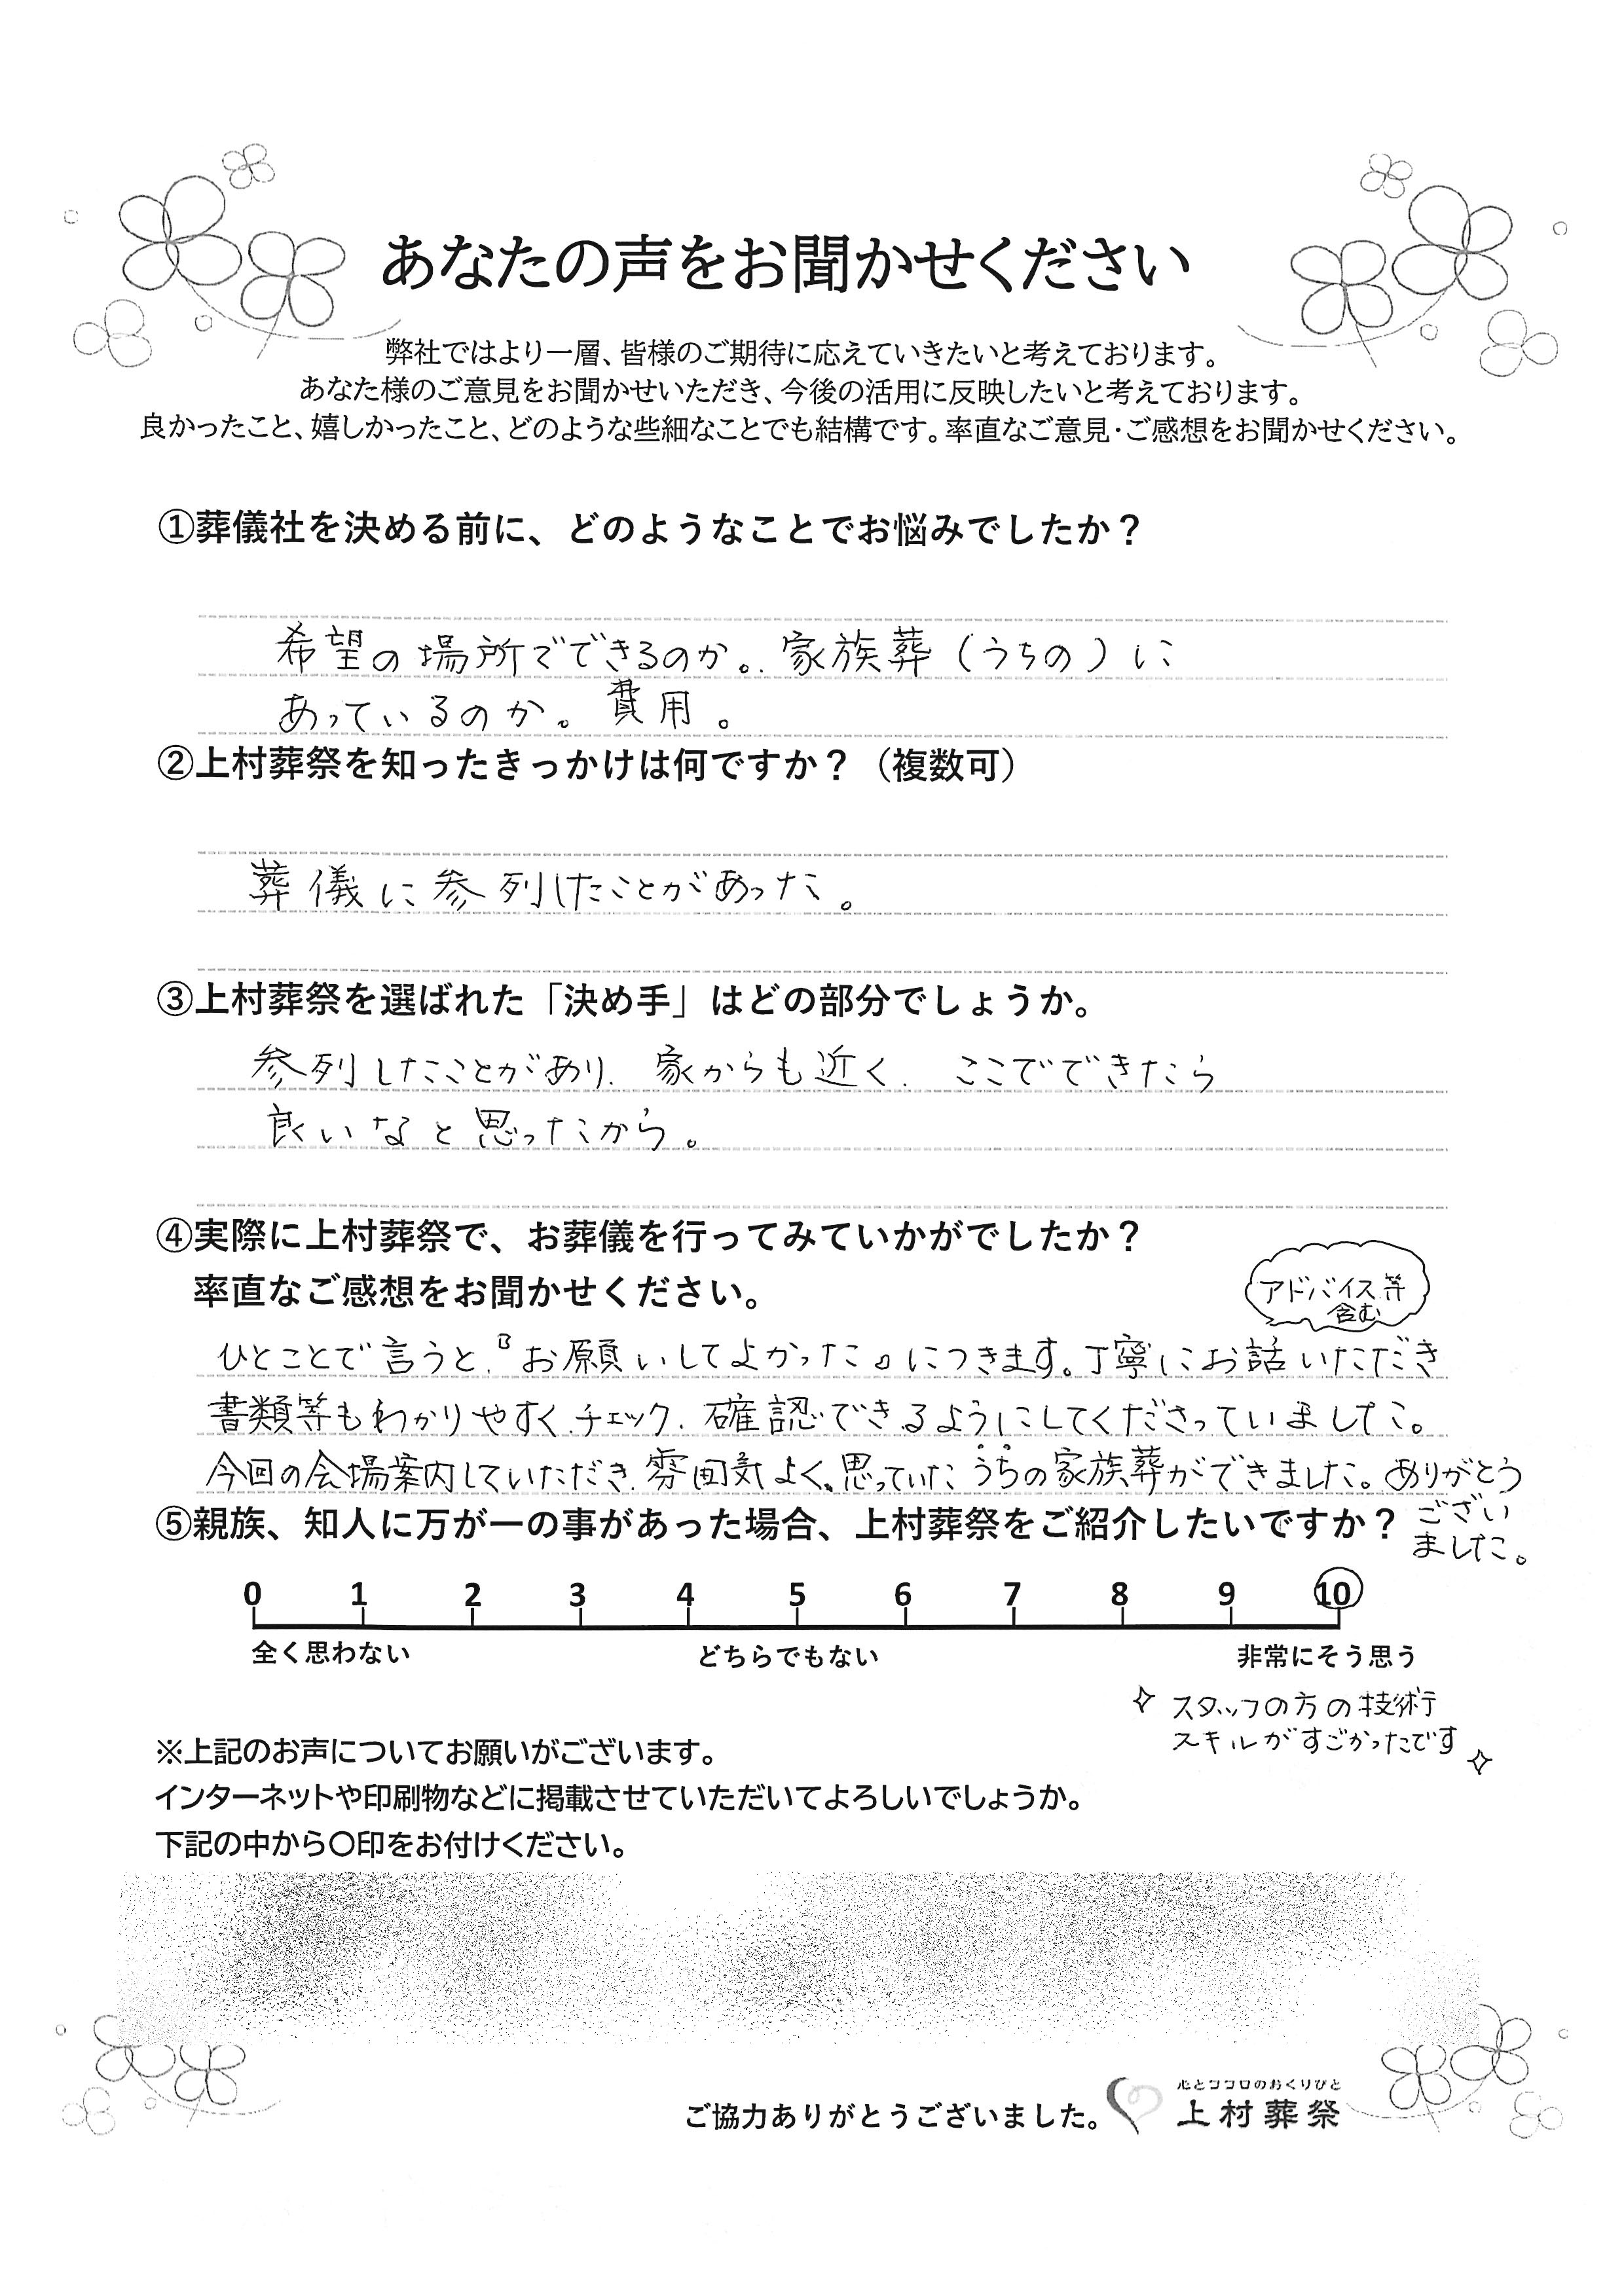 あなたの声をお聞かせください
弊社ではより一層、皆様のご期待に応えていきたいと考えております。
あなた様のご意見をお聞かせいただき、今後の活用に反映したいと考えております。
良かったこと、嬉しかったこと、どのような些細なことでも結構です。率直なご意見・ご感想をお聞かせください。
①葬儀社を決める前に、どのようなことでお悩みでしたか？
希望の場所でできるのか。家族葬（うちの）に
あっているのか。費用。
②上村葬祭を知ったきっかけは何ですか？（複数可）
葬儀に参列したことがあった。
③上村葬祭を選ばれた「決め手」はどの部分でしょうか。
参列したことがあり、家からも近く、ここでできたら
良いなと思ったから。
④実際に上村葬祭で、お葬儀を行ってみていかがでしたか？
率直なご感想をお聞かせください。
アドバイス等
含む
ひとことで言うと、『お願いしてよかった』につきます。丁寧にお話いただき
書類等もわかりやすく、チェック、確認できるようにしてくださっていました。
今回の会場案内していただき、雰囲気よく、思っていたうちの家族葬ができました。ありがとう
ござい
ました。
⑤親族、知人に万が一の事があった場合、上村葬祭をご紹介したいですか？
0 1 2 3 4 5 6 7 8 9 10
全く思わない どちらでもない 非常にそう思う
スタッフの方の技術
スキルがすごかったです
※上記のお声についてお願いがございます。
インターネットや印刷物などに掲載させていただいてよろしいでしょうか。
下記の中から〇印をお付けください。
心とココロのおくりびと
ご協力ありがとうございました。 上村葬祭